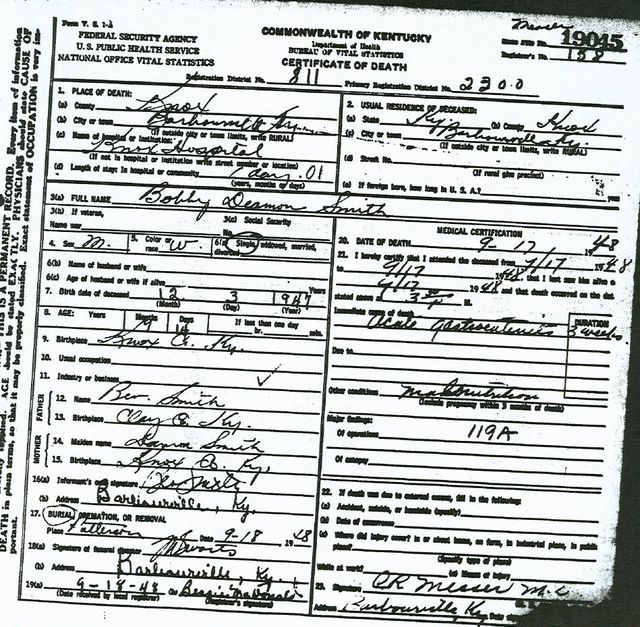 Form V. S. 1-A
FEDERAL SECURITY AGENCY
U. S. PUBLIC HEALTH SERVICE
NATIONAL OFFICE VITAL STATISTICS
COMMONWEALTH OF KENTUCKY
Department of Health
BUREAU OF VITAL STATISTICS
CERTIFICATE OF DEATH
Messer
State File No. 19045
Registrar's No. 158
Registration District No. 811 Primary Registration District No. 2300
1. PLACE OF DEATH:
(a) County Knox
(b) City or town Barbourville, Ky.
(If outside city or town limits, write RURAL)
(c) Name of hospital or institution:
Knox Hospital
(If not in hospital or institution write street number or location)
(d) Length of stay: In hospital or community 1 day. 01
(years, months or days)
2. USUAL RESIDENCE OF DECEASED:
(a) State Ky (b) County Knox
(c) City or town Barbourville Ky.
(If outside city or town limits, write RURAL)
(d) Street No.
(If rural give precinct)
(e) If foreign born, how long in U. S. A.?
3(a) FULL NAME Bobby Deamon Smith
3(b) If veteran, 3(c) Social Security
Name war No.
4. Sex M. 5. Color or race W. 6(a) Single, widowed, married, divorced
6(b) Name of husband or wife
6(c) Age of husband or wife if alive Years
7. Birth date of deceased 12 3 1947
(Month) (Day) (Year)
8. AGE: Years Months 9 Days 14 If less than one day
hr. min.
9. Birthplace Knox Co. Ky.
10. Usual occupation
11. Industry or business
FATHER
12. Name Bev. Smith
13. Birthplace Clay Co. Ky.
MOTHER
14. Maiden name Smith
15. Birthplace Knox Co. Ky.
16(a) Informant's own signature
(b) Address Barbourville, Ky.
17. BURIAL, CREMATION, OR REMOVAL
Place Patterson Date 9-18 1948
18(a) Signature of funeral director
(b) Address Barbourville, Ky.
19(a) 9-18-48 (b) Bessie McDonald
(Date received by local registrar) (Registrar's signature)
MEDICAL CERTIFICATION
20. DATE OF DEATH 9-17 1948
21. I hereby certify that I attended the deceased from 9/17 1948
to 9/17 1948, that I last saw him alive on
9/17 1948 and that death occurred on the date
stated above at 3 P M.
Immediate cause of death DURATION
Acute gastroenteritis 3 weeks
Due to
Other conditions Malnutrition
(Include pregnancy within 3 months of death)
Major findings:
Of operations 119A
Of autopsy
22. If death was due to external causes, fill in the following:
(a) Accident, suicide, or homicide (specify)
(b) Date of occurrence
(c) Where did injury occur? in or about home, on farm, in industrial place, in public
place?
(Specify type of place)
While at work? (e) Means of injury
23. Signature OR Messer M.D.
Address Barbourville Ky Date